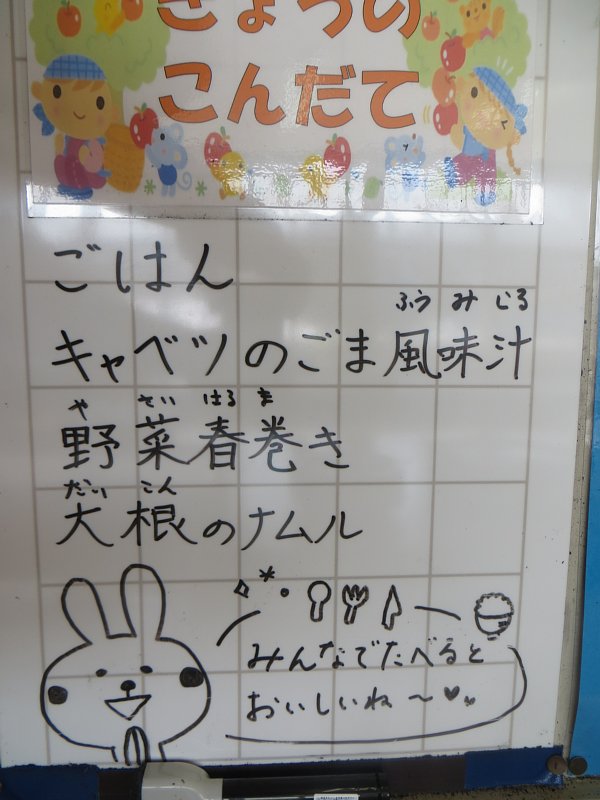 きょうの
こんだて
ごはん
ふうみじる
キャベツのごま風味汁
やさいはるま
野菜春巻き
だいこん
大根のナムル
みんなでたべると
おいしいね〜